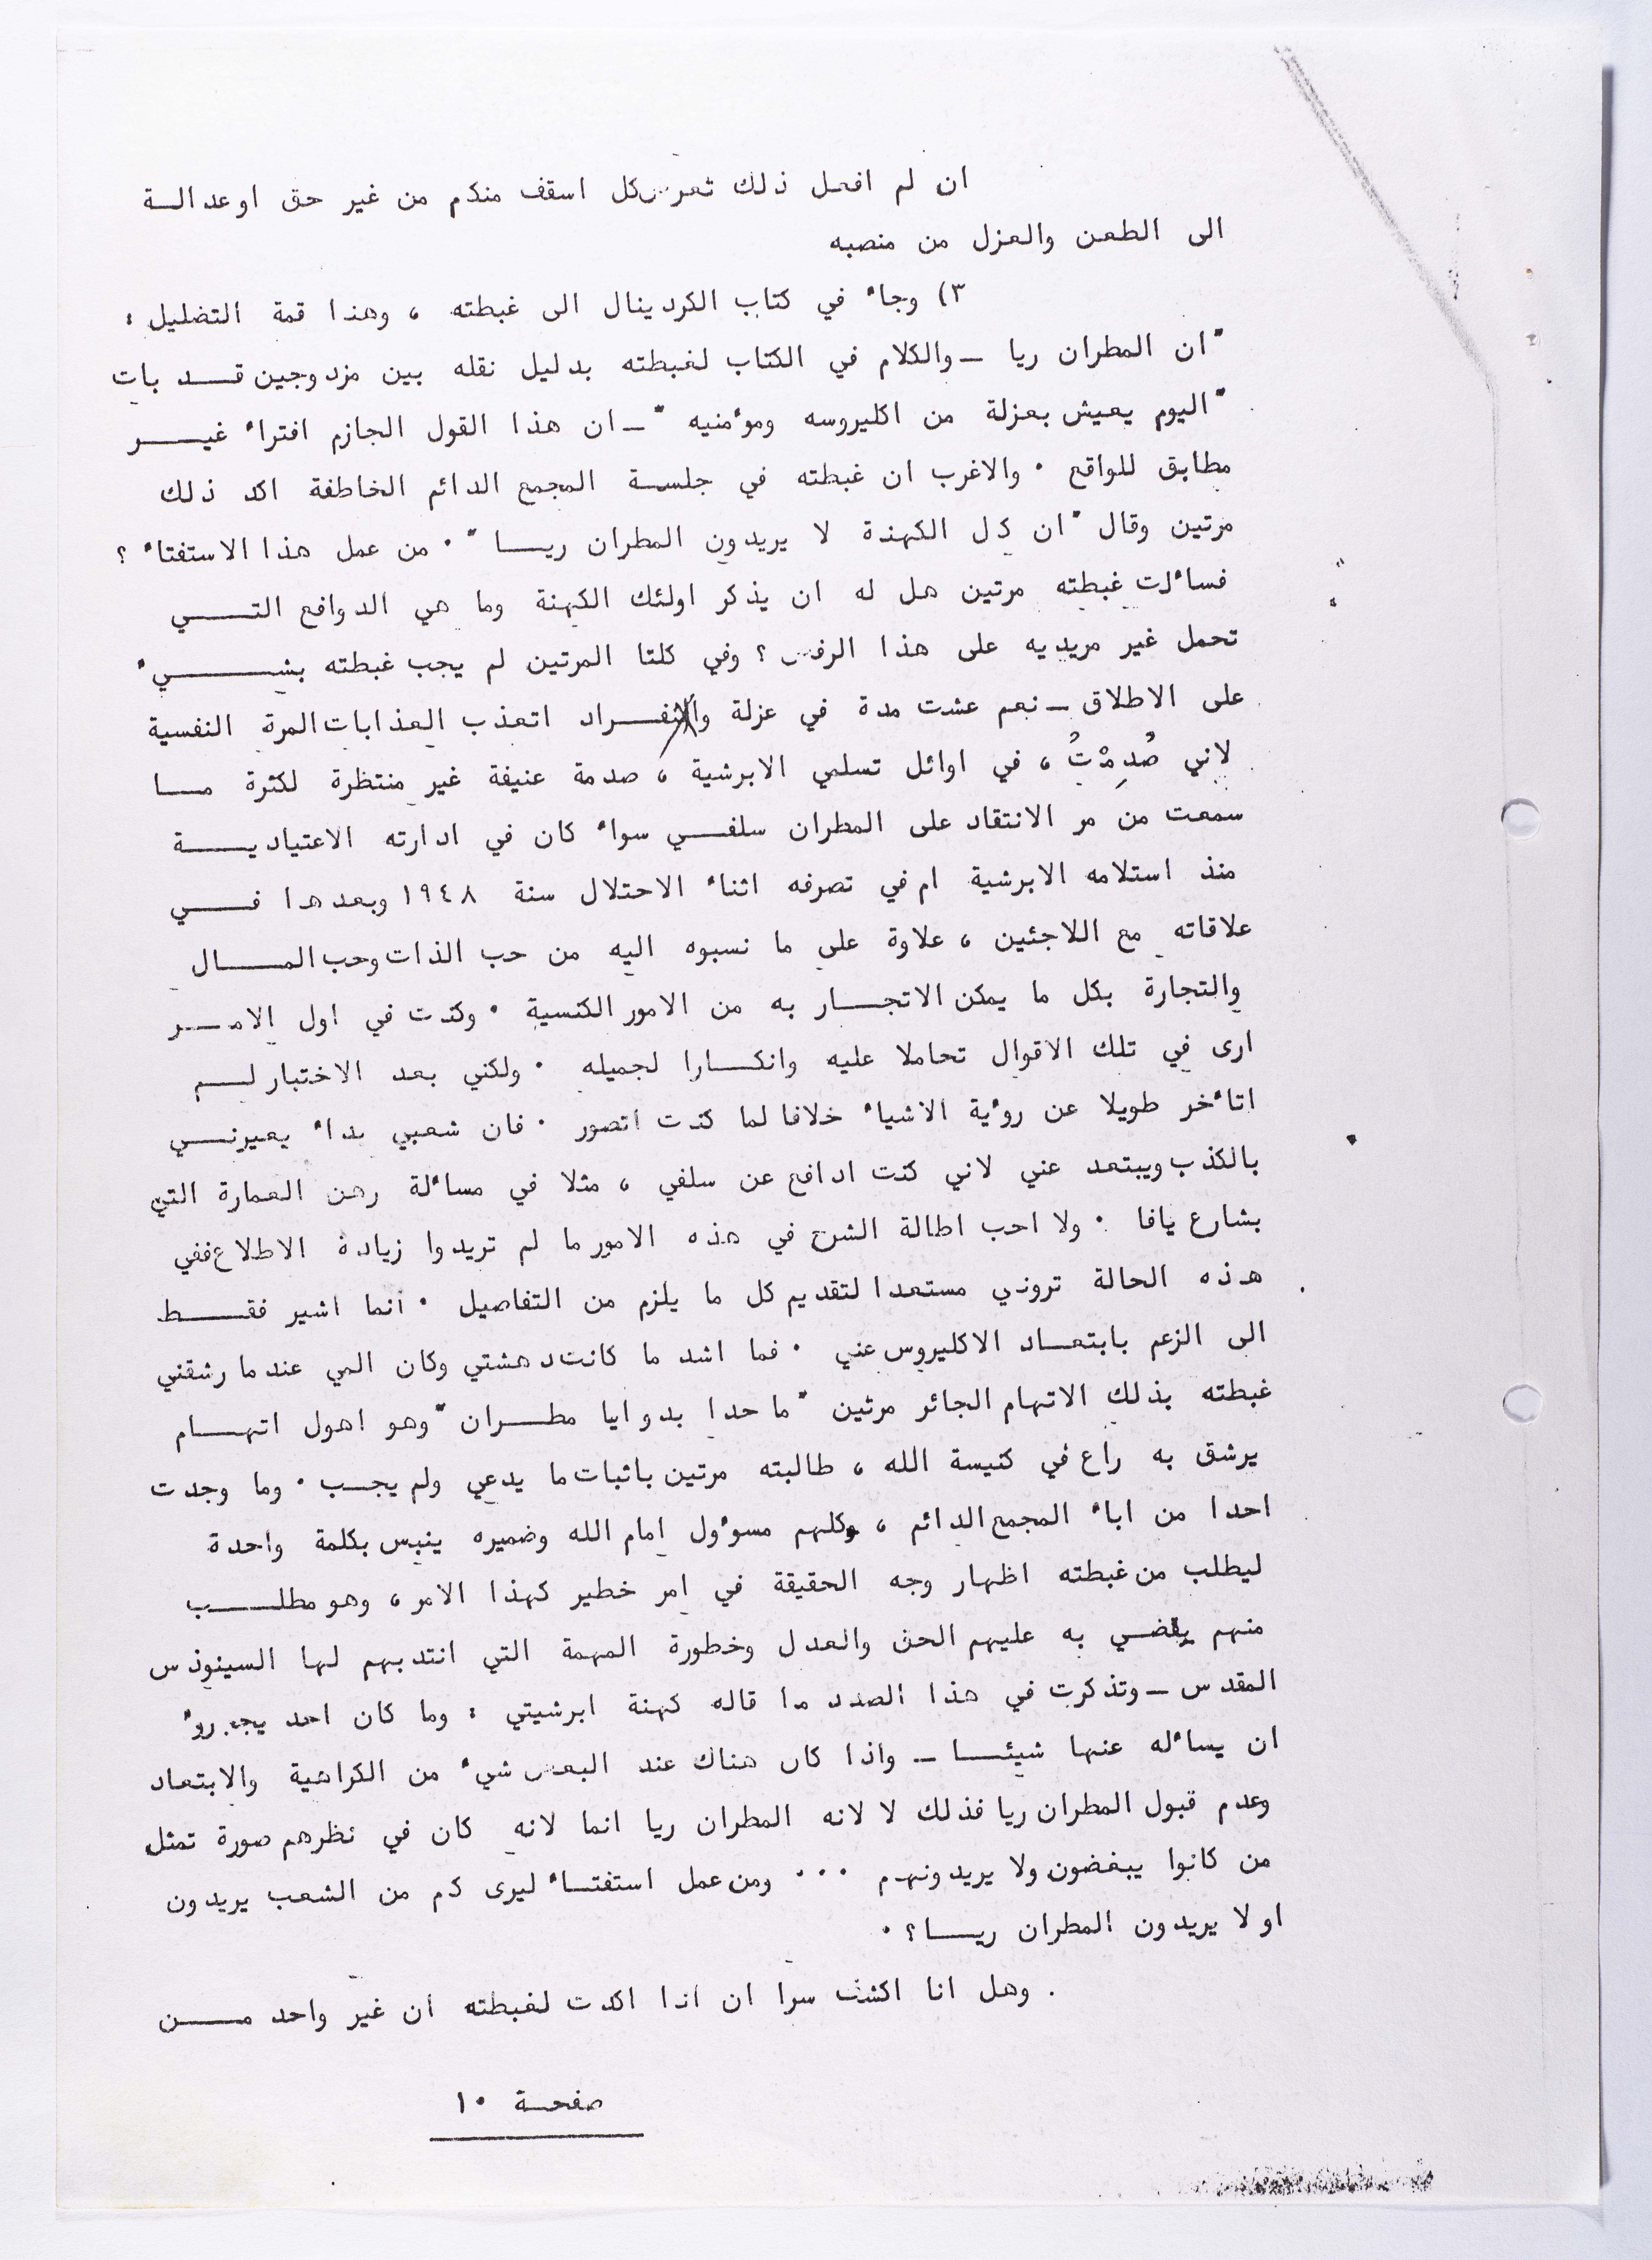 ان لم افعل ذلك تعرض كل اسقف منكم من غير حق او عدالــة
الى الطعن والعزل من منصبه
٣) وجاء في كتاب الكردينال الى غبطته ، وهذا قمة التضليل :
" ان المطران ريا ــ والكلام في الكتاب لغبطته بدليل نقله بين مزدوجين قــد بات
" اليوم يعيش بعزلة من اكليروسه ومؤمنيه " ــ ان هذا القول الجازم افتراء غيـــر
مطابق للواقع . والاغرب ان غبطته في جلسة المجمع الدائم الخاطفة اكد ذلك
مرتين وقال " ان كل الكهنة لا يريدون المطران ريــا " . من عمل هذا الاستفتاء ؟
فسأُلت غبطته مرتين هل له ان يذكر اولئك الكهنة وما هي الدوافع التـــي
تحمل غير مريديه على هذا الرفض ؟ وفي كلتا المرتين لم يجب غبطته بشـــيء
على الاطلاق ــ نعم عشت مدة في عزلة وانفــراد اتعذب العذابات المرة النفسية
لاني صُدِمْتُ ، في اوائل تسلمي الابرشية ، صدمة عنيفة غير منتظرة لكثرة مــا
سمعت من مر الانتقاد على المطران سلفــي سواء كان في ادارته الاعتياديــة
منذ استلامه الابرشية ام في تصرفه اثناء الاحتلال سنة ١٩٤٨ وبعدها فـــي
علاقاته مع اللاجئين ، علاوة على ما نسبوه اليه من حب الذات وحب المــال
والتجارة بكل ما يمكن الاتجــار به من الامور الكنسية . وكنت في اول الامــر
ارى في تلك الاقوال تحاملا عليه وانكــارا لجميله . ولكني بعد الاختبار لــم
اتأخر طويلا عن رؤية الاشياء خلافا لما كنت اتصور . فان شعبي بدأ يعيرنــي
بالكذب ويبتعد عني لاني كنت ادافع عن سلفي ، مثلا في مسألة رهن العمارة التي
بشارع يافا . ولا احب اطالة الشرح في هذه الامور ما لم تريدوا زيادة الاطلاع ففي
هذه الحالة تروني مستعدا لتقديم كل ما يلزم من التفاصيل . انما اشير فقــط
الى الزعم بابتعــاد الاكليروس عني . فما اشد ما كانت دهشتي وكان المي عندما رشقني
غبطته بذلك الاتهام الجائر مرتين " ما حدا بدو ايا مطــران " وهو اهول اتهــام
يرشق به راع في كنيسة الله ، طالبته مرتين باثبات ما يدعي ولم يجــب . وما وجدت
احدا من اباء المجمع الدائم ، وكلهم مسؤول امام الله وضميره ينبس بكلمة واحدة
ليطلب من غبطته اظهار وجه الحقيقة في امر خطير كهذا الامر ، وهو مطلــب
منهم يقضــي به عليهم الحق والعدل وخطورة المهمة التي انتدبهم لها السينوذس
المقدس ــ وتذكرت في هذا الصدد ما قاله كهنة ابرشيتي : وما كان احد يجرؤ
ان يسأله عنها شيئــا ــ واذا كان هناك عند البعض شيء من الكراهية والابتعاد
وعدم قبول المطران ريا فذلك لا لانه المطران ريا انما لانه كان في نظرهم صورة تمثل
من كانوا يبغضون ولا يريدونهم ... ومن عمل استفتــاء ليرى كم من الشعب يريدون
او لا يريدون المطران ريــا ؟ .
. وهل انا اكشف سرا ان انا اكدت لغبطته ان غير واحد مـــن
صفحـة ١٠